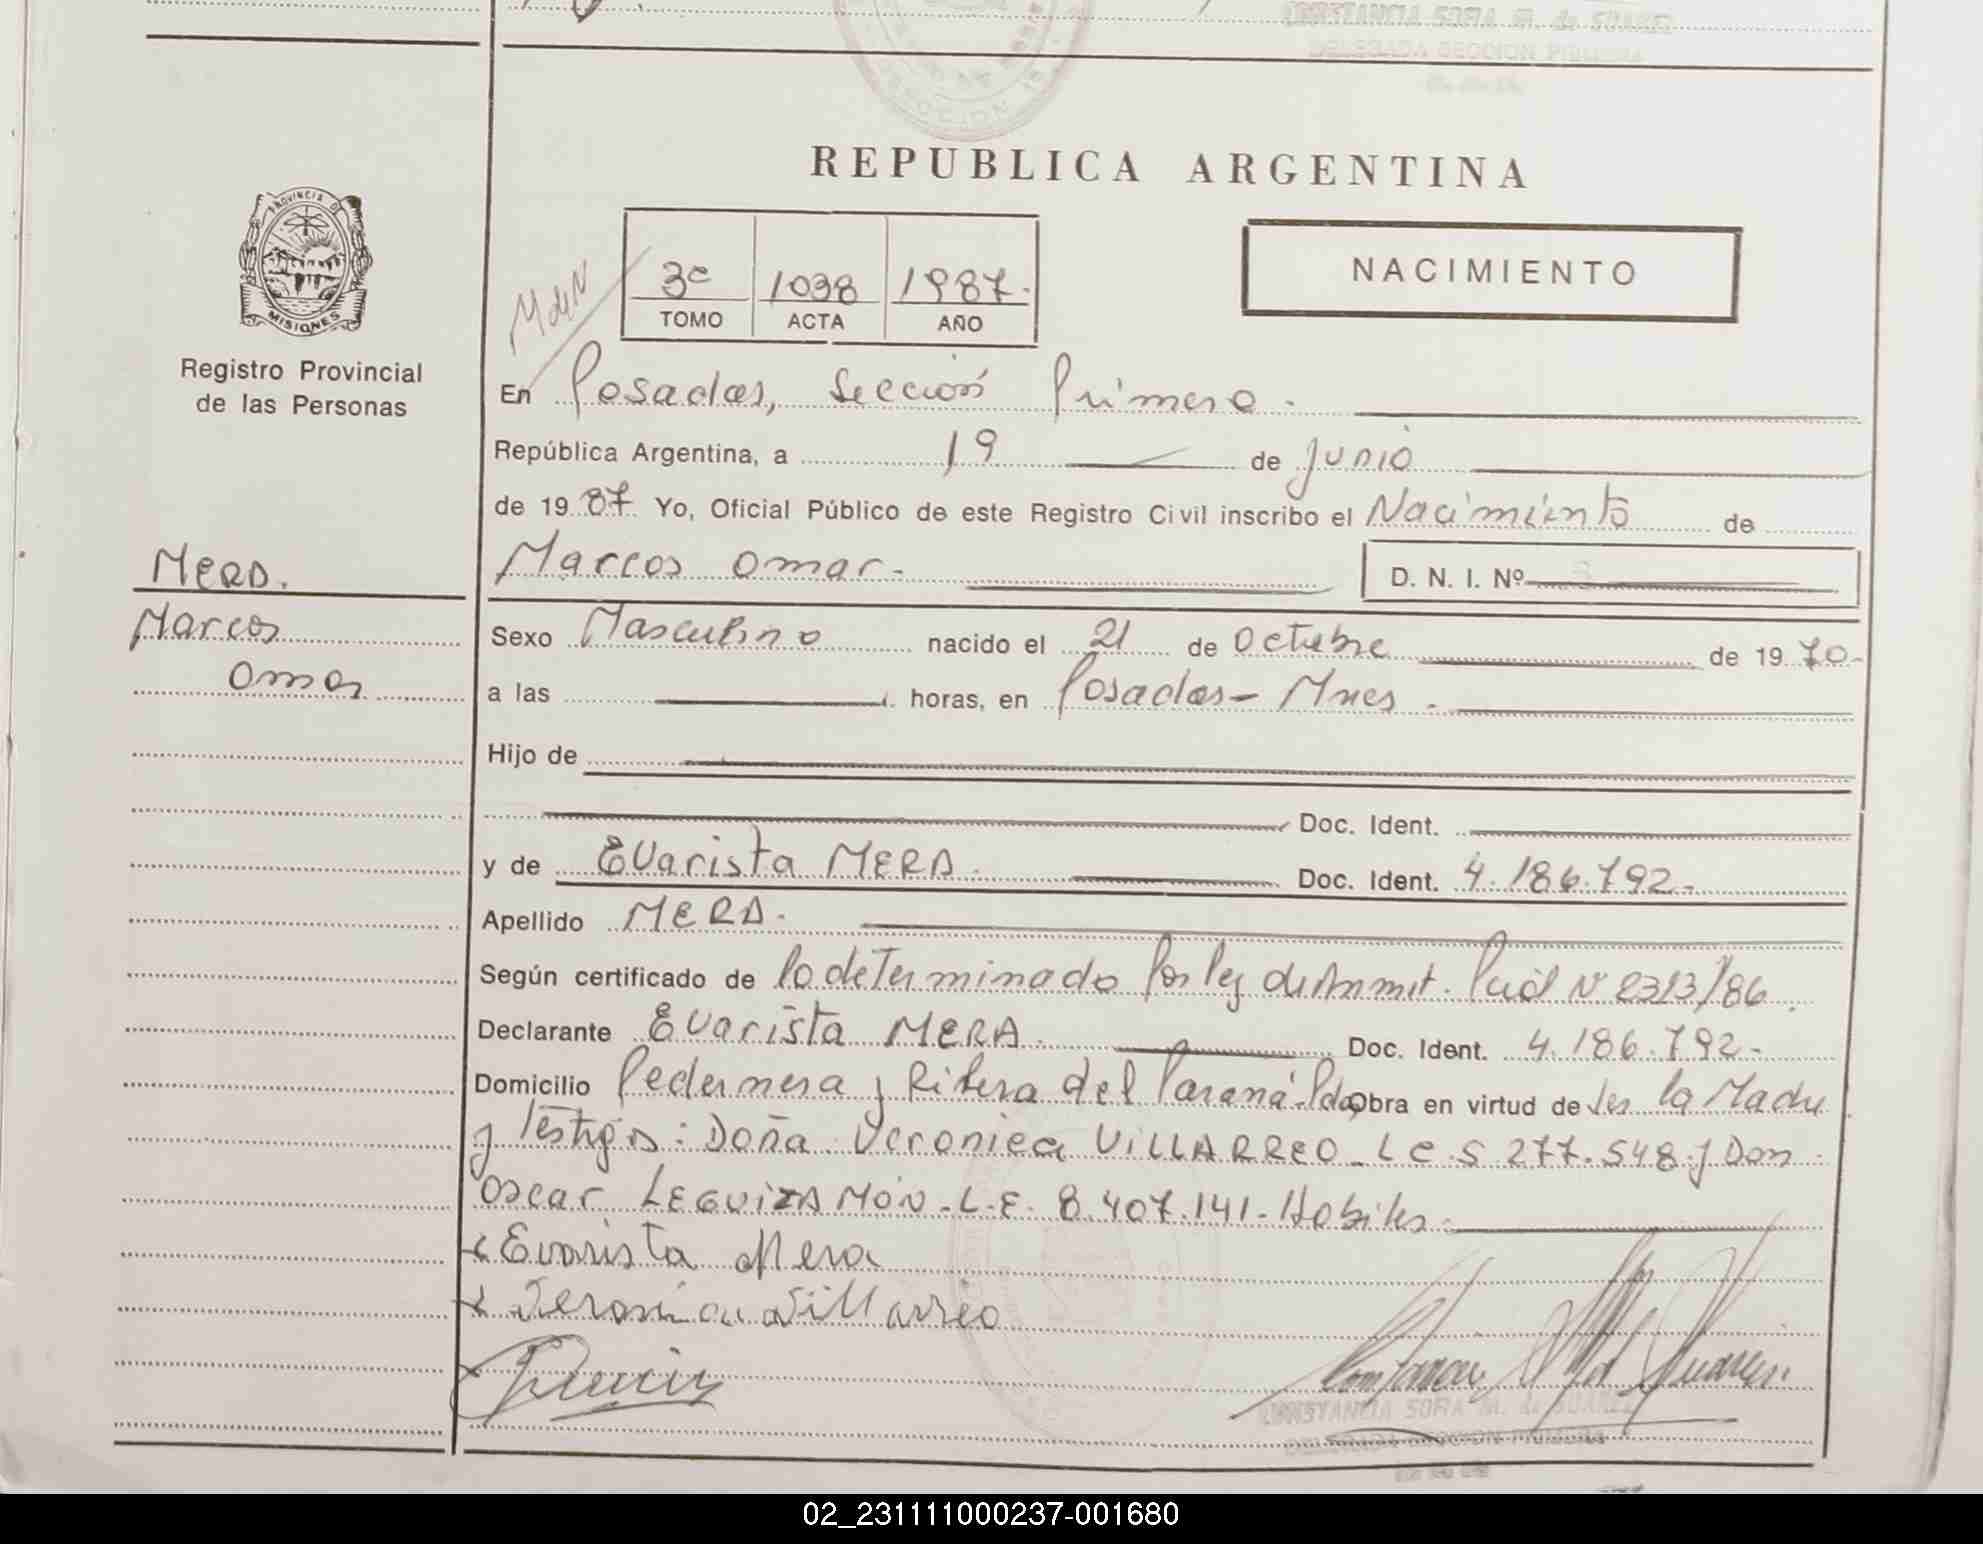 CONSTANCIA SOFIA M. de SUAREZ
DELEGADA SECCION PRIMERA
SECCION 1ª
REPUBLICA ARGENTINA
PROVINCIA DE
MISIONES
Registro Provincial
de las Personas
M de N
3º 1038 1987.
TOMO ACTA AÑO
NACIMIENTO
En Posadas, Sección Primera.
República Argentina, a 19 de Junio
de 1987 Yo, Oficial Público de este Registro Civil inscribo el Nacimiento de
MERA.
Marcos Omar. D. N. I. Nº
Marcos
Omar
Sexo Masculino nacido el 21 de Octubre de 1970.
a las horas, en Posadas - Mnes.
Hijo de
Doc. Ident.
y de Evarista MERA. Doc. Ident. 4.186.792.
Apellido MERA.
Según certificado de lo determinado por ley de Amnit. Pcial Nº 2313/86.
Declarante Evarista MERA. Doc. Ident. 4.186.792.
Domicilio Pedernera y Ribera del Paraná. Pdas Obra en virtud de ser la Madre
y Testigos: Doña Veronica VILLARREO - L C 5 277.548 y Don
Oscar LEGUIZAMÓN - L.E. 8.407.141. Hábiles.
Evarista Mera
Veronica Villarreo
CONSTANCIA SOFIA M. de SUAREZ
02_231111000237-001680